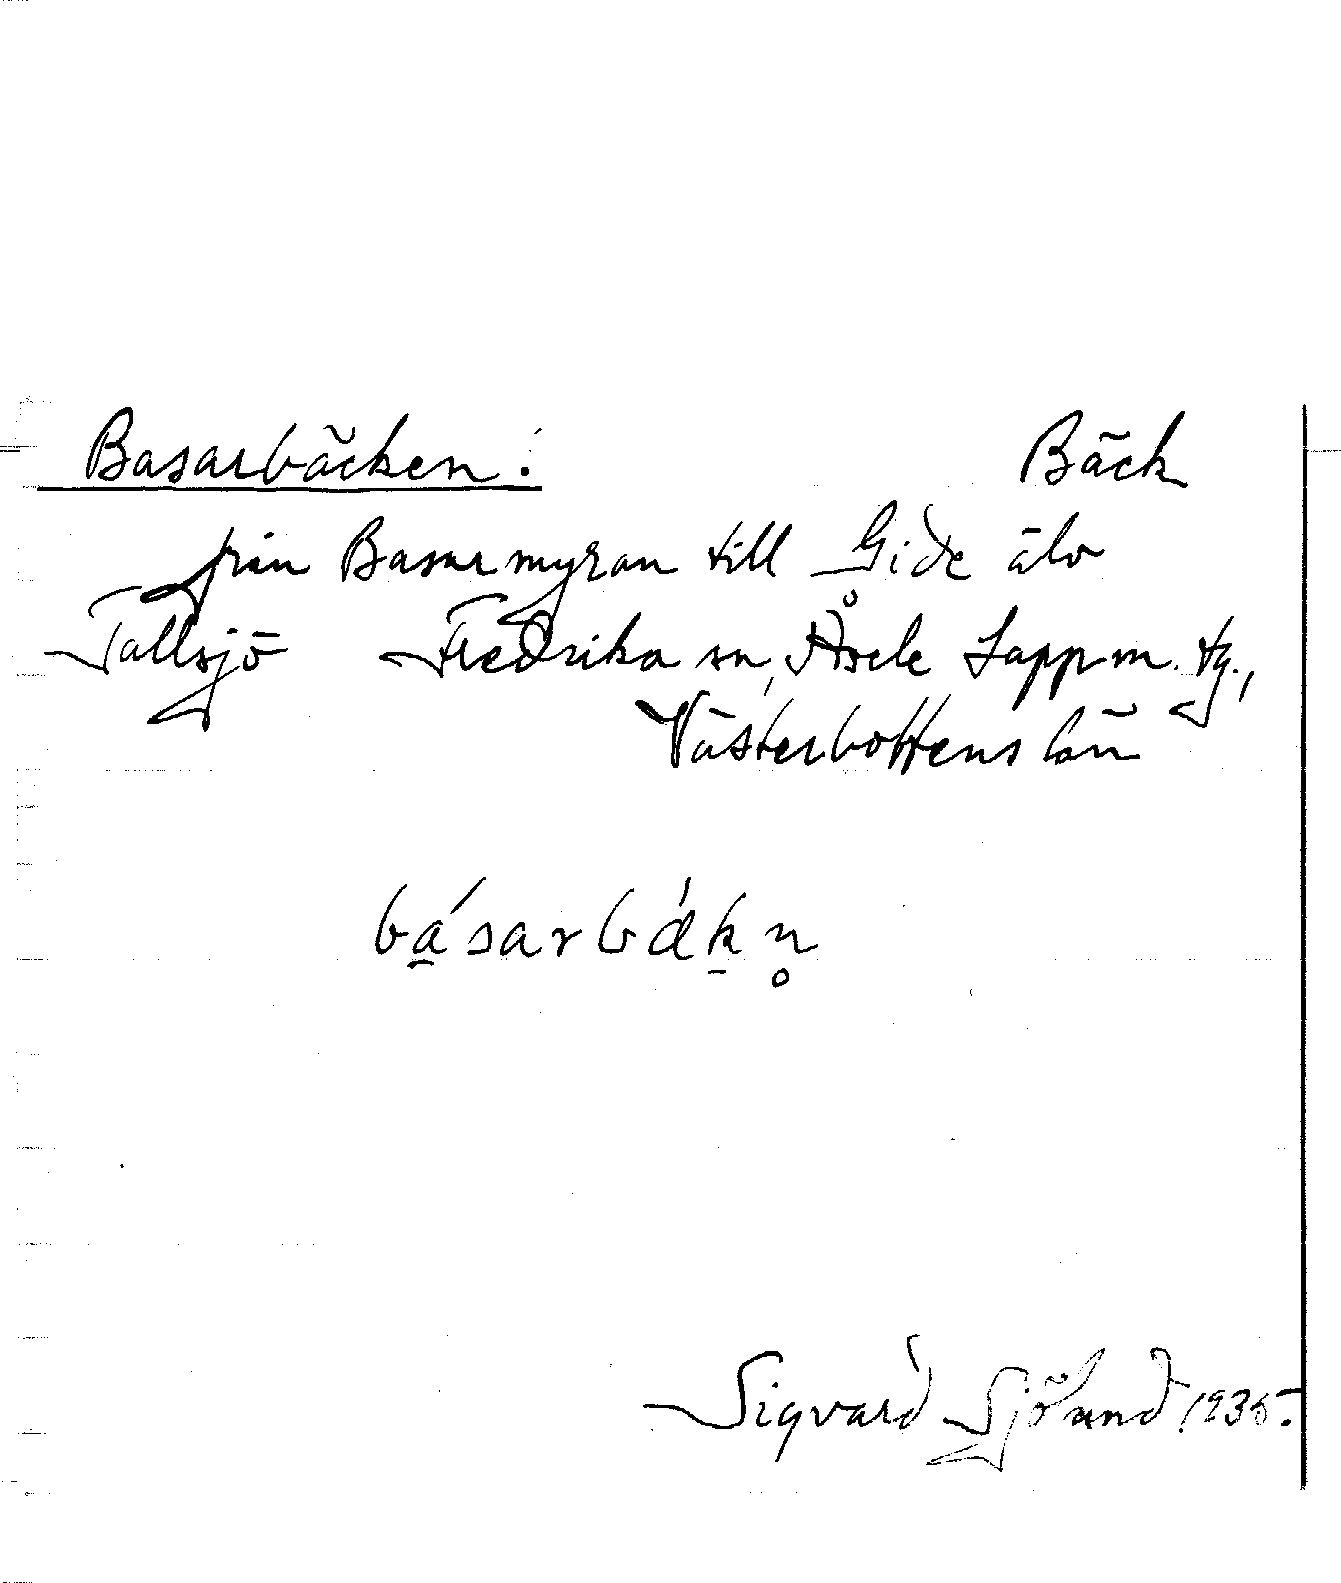 Basarbäcken: Bäck
från Basarmyran till Gide älv
Tallsjö Fredrika sn, Åsele Lappm. tg.,
Västerbottens län
bása̱rbǽḵn̥
Sigvard Sjölund 1935.